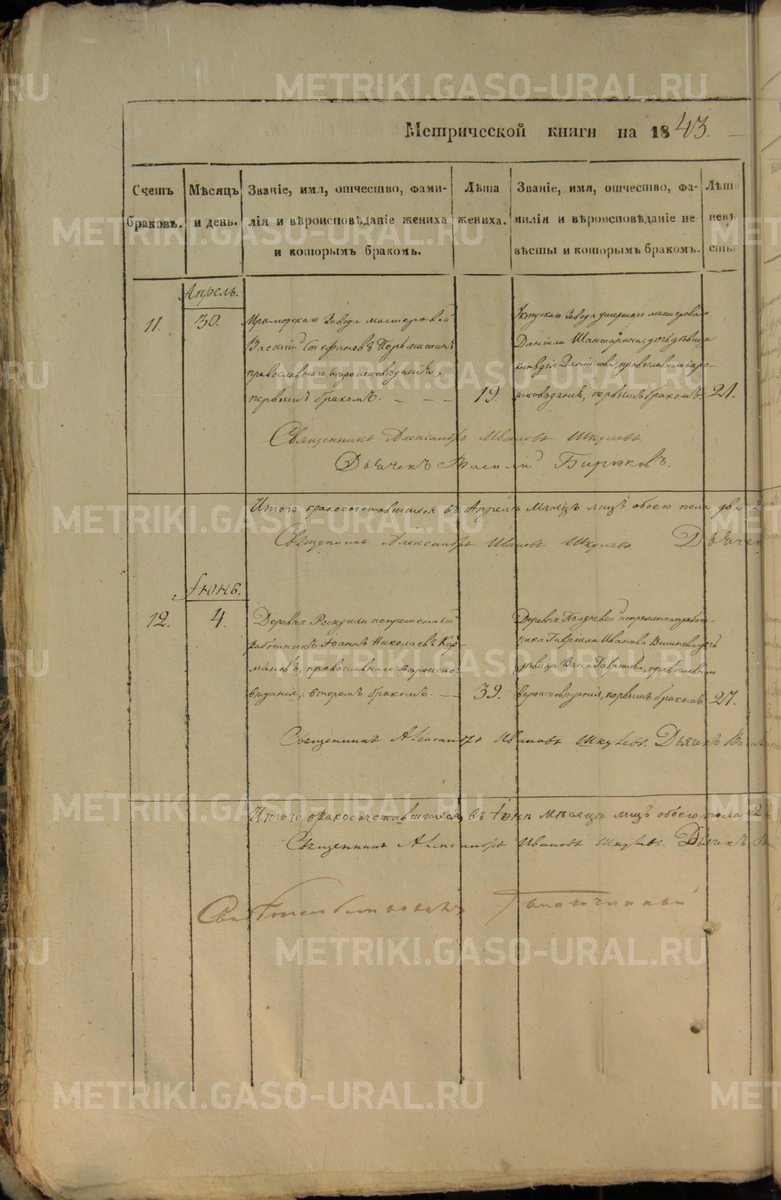 METRIKI.GASO-URAL.RU
Метрической книги на 1843.
Счетъ браковъ.
Мѣсяцъ и день.
Званіе, имя, отчество, фамилія и вѣроисповѣданіе жениха и которымъ бракомъ.
Лѣта жениха.
Званіе, имя, отчество, фамилія и вѣроисповѣданіе невѣсты и которымъ бракомъ.
Лѣт
невѣ
сты
Апрель.
11.
30.
Завода мастеровой
Василий Стефановъ
православнаго вѣроисповѣданія,
первымъ бракомъ.
19.
Завода умершаго мастероваго
Данила дочь девица
Данилова, православнаго вѣро
исповѣданія, первымъ бракомъ.
21.
Священникъ Александръ Ивановъ Шкулевъ
Дьячекъ Василий Бирюковъ.
Итого бракосочетавшихся въ Апрелѣ Мѣсяцѣ лицъ обоего пола два 2
Священникъ Александръ Ивановъ Шкулевъ Дьячек
Іюнь.
12.
4.
Деревни Роскуихи непременный
работникъ Иоаннъ Николаевъ Кар-
мановъ, православнаго вѣроиспо-
вѣданія, вторымъ бракомъ.
39.
Деревни Полдневой непременнаго работ-
ника Гавриила Иванова
девица Гаврилова, православнаго
вѣроисповѣданія, первымъ бракомъ
27.
Священникъ Александръ Ивановъ Шкулевъ. Дьячекъ Васил
Итого бракосочетавшихся въ Іюнѣ мѣсяцѣ лицъ обоего пола 2
Священникъ Александръ Ивановъ Шкулевъ. Дьячекъ